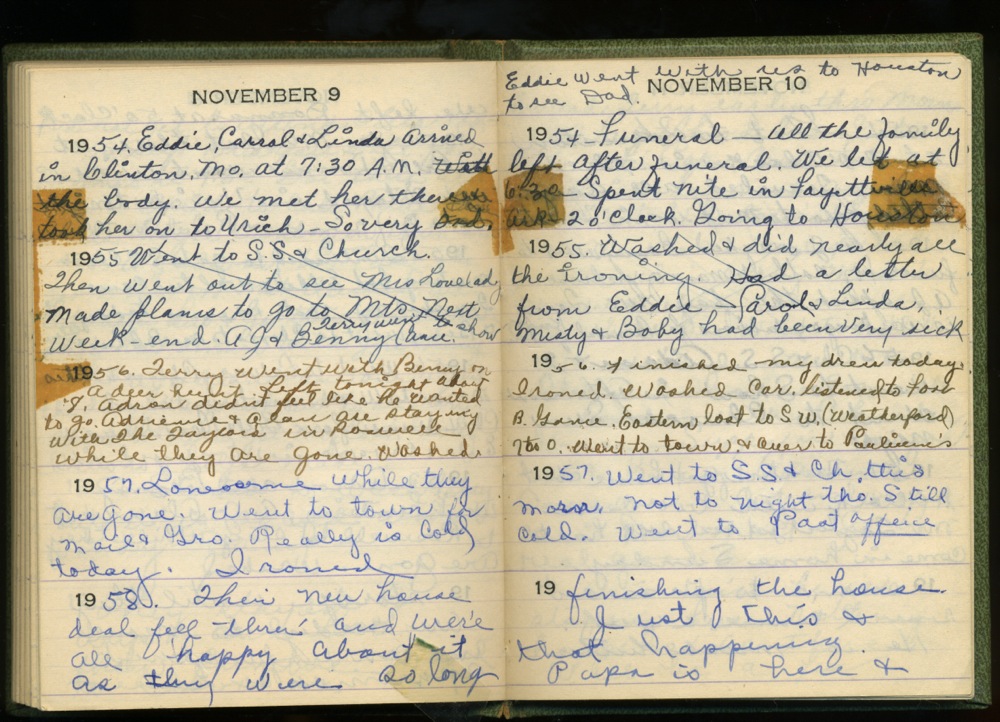 NOVEMBER 9
1954. Eddie, Carrol & Linda arrived
in Clinton, Mo. at 7:30 A.M. With
the body. We met her there &
took her on to Urich - So very sad.
1955 Went to S.S. & Church.
Then went out to see Mrs Lovelady
made plans to go to Mts. Next
Week-end. A J & Benny
Terry went to show
1956. Terry went with Benny on
a deer hunt. Left tonight about
7. Adron didn't feel like he wanted
to go. Adrienne & Alan are staying
with the Taylors in
while they are gone. Washed.
1957. Lonesome while they
are gone. Went to town for
mail & Gro. Really is cold
today. Ironed
1958. Their new house
deal fell thru and we're
all happy about it
as they were so long
Eddie went with us to Houston
to see Dad.
NOVEMBER 10
1954 Funeral - all the family
left after funeral. We left at
6:30 - Spent nite in Fayettville
Ark - 2 o'Clock. Going to Houston
1955. Washed & did nearly all
the ironing Had a letter
from Eddie - Carol & Linda,
Misty & Boby had been very sick
1956. Finished my dress today.
Ironed. Washed Car. listened to foot
B. Game. Eastern lost to S.W. (Weatherford)
7 to 0. Went to town & over to
1957. Went to S.S. & Ch. this
morn. not to night tho. Still
cold. Went to Post office
19 finishing the house.
Just this &
that happening.
Papa is here &